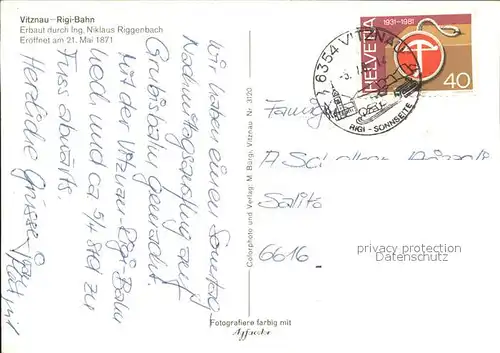 Vitznau-Rigi-Bahn
Erbaut durch Ing. Niklaus Riggenbach
Eröffnet am 21. Mai 1871
Wir haben einen Sonntag-
Nachmittagsausflug auf
Grubisbalm gemacht.
Mit der Vitznau-Rigi-Bahn
und ca 5/4 Std zu
Fuss abwärts.
Herzliche Grüsse
Colorphoto und Verlag: M. Bürgi, Vitznau Nr. 3120
Fotografiere farbig mit
6354 VITZNAU
RIGI - SONNSEITE
1931-1981
HELVETIA
40
6616
privacy protection
Datenschutz